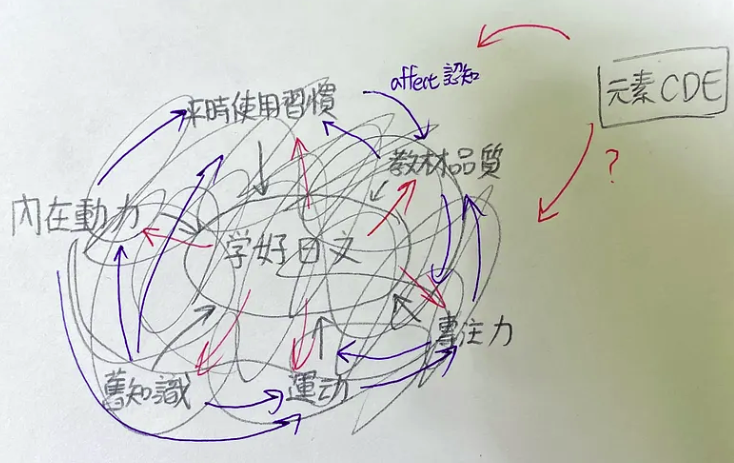 affect 認知
元素CDE
平時使用習慣
教材品質
?
內在動力
学好日文
專注力
舊知識
運动